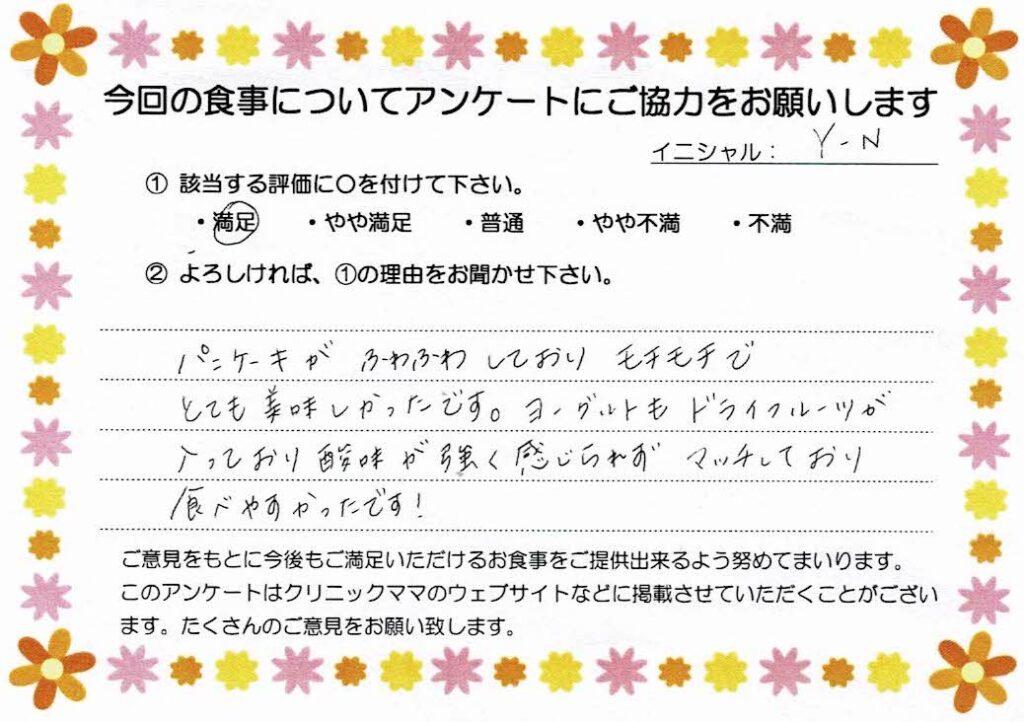 今回の食事についてアンケートにご協力をお願いします
イニシャル： Y-N
① 該当する評価に○を付けて下さい。
・満足 ・やや満足 ・普通 ・やや不満 ・不満
② よろしければ、①の理由をお聞かせ下さい。
パンケーキが ふわふわしており モチモチで
とても美味しかったです。ヨーグルトもドライフルーツが
入っており酸味が強く感じられずマッチしており
食べやすかったです！
ご意見をもとに今後もご満足いただけるお食事をご提供出来るよう努めてまいります。
このアンケートはクリニックママのウェブサイトなどに掲載させていただくことがござい
ます。たくさんのご意見をお願い致します。